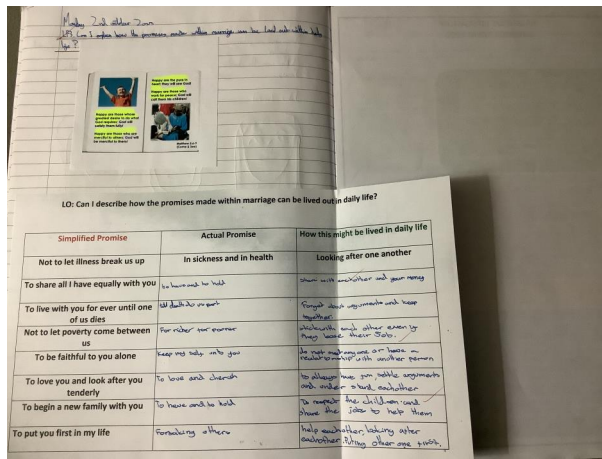 Monday 2nd October
LO: Can I explain how the promises made within marriage can be lived out within daily
life?
Happy are the pure in
heart; they will see God!
Happy are those who
work for peace; God will
call them his children!
Happy are those whose
greatest desire is to do what
God requires; God will
satisfy them fully!
Happy are those who are
merciful to others; God will
be merciful to them!
LO: Can I describe how the promises made within marriage can be lived out in daily life?
Simplified Promise
Actual Promise
How this might be lived in daily life
Not to let illness break us up
In sickness and in health
Looking after one another
To share all I have equally with you
to have and to hold
share with eachother and your money
To live with you for ever until one
of us dies
till death do us part
Forget about arguments and keep
together
Not to let poverty come between
us
For richer for poorer
stick with each other even if
they loose their Job.
To be faithful to you alone
Keep only unto you
do not met anyone or have a
relationship with another person
To love you and look after you
tenderly
To love and cherish
to always have fun, settle arguments
and under stand eachother
To begin a new family with you
To have and to hold
To respect the children and
share the jobs to help them
To put you first in my life
Forsaking others
help eachother, looking after
eachother. Puting other one first.